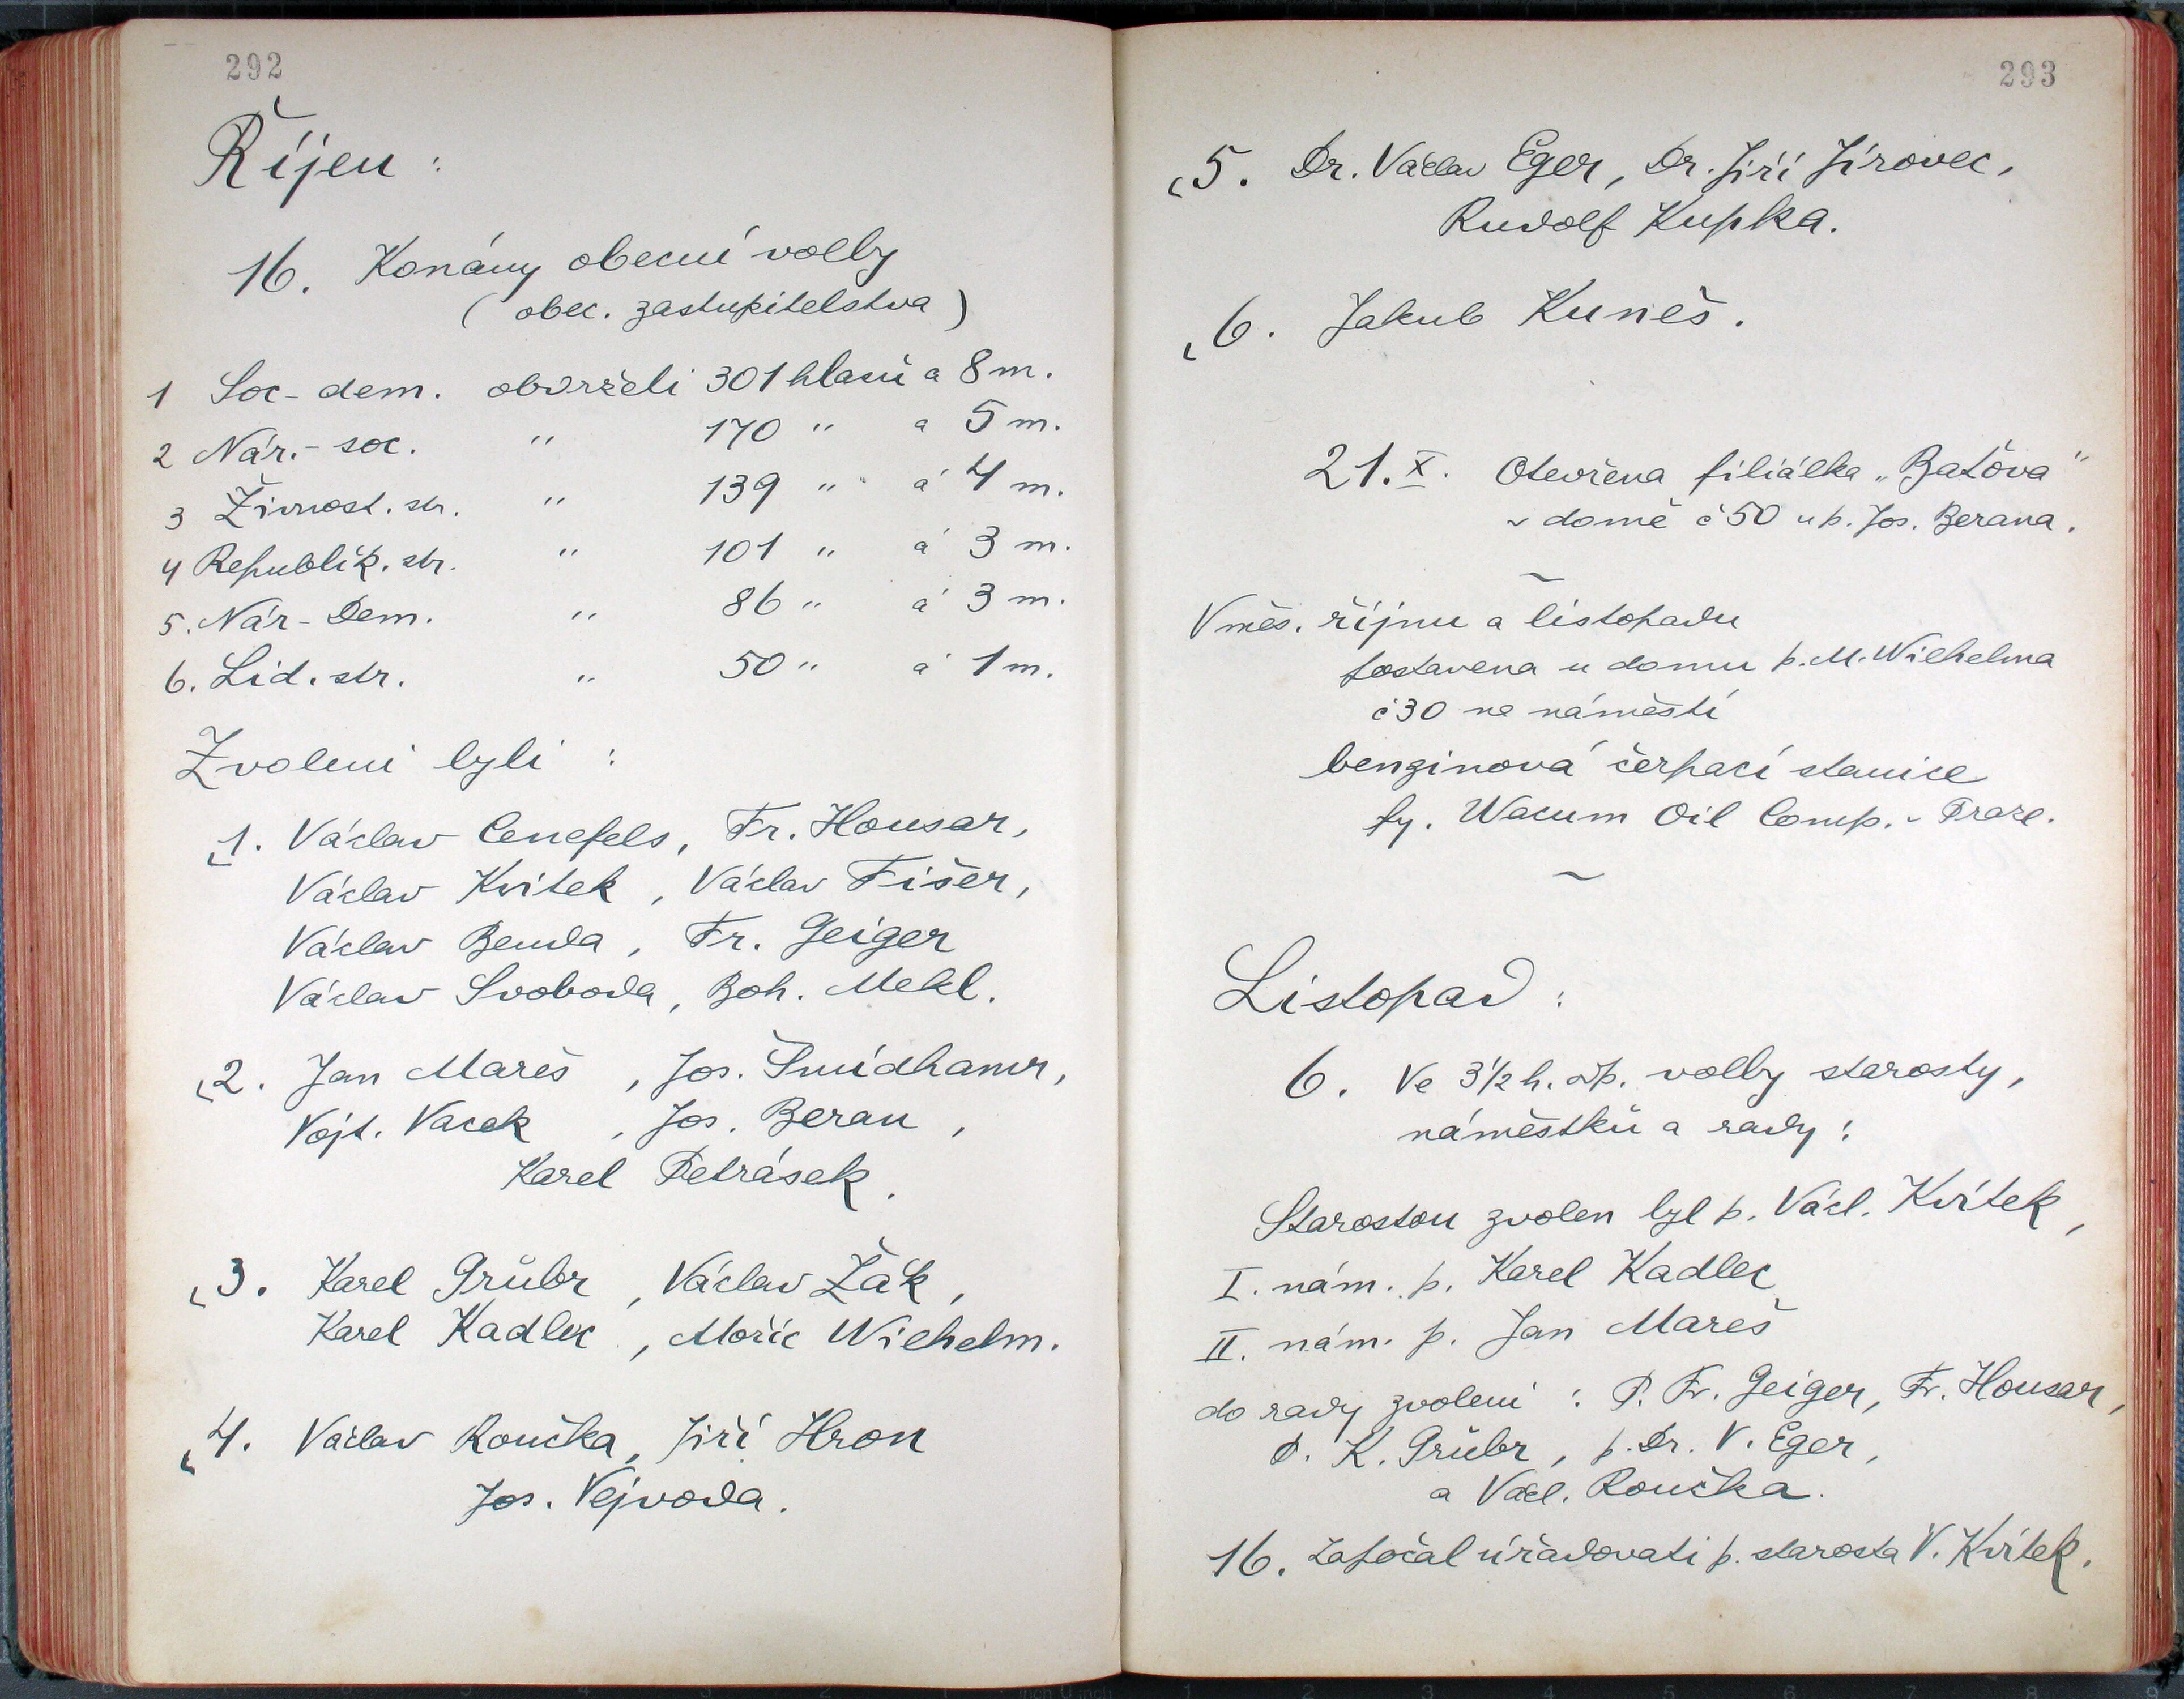 292
Říjen :
16. Konány obecní volby
( obec. zastupitelstva )
1 Soc-dem. obdrželi 301 hlasů a 8 m.
2 Nár.-soc. " 170 " a 5 m.
3 Živnost. str. " 139 " á 4 m.
4 Republik. str. " 101 " á 3 m.
5. Nár-Dem. " 86 " á 3 m.
6. Lid. str. " 50 " á 1 m.
Zvoleni byli :
1. Václav Cenefels, Fr. Housar,
Václav Kvítek, Václav Fišer,
Václav Benda, Fr. Geiger
Václav Svoboda, Boh. Mekl.
2. Jan Mareš, Jos. Šmídhamr,
Vojt. Vacek, Jos. Beran,
Karel Petrásek.
3. Karel Grübr, Václav Žák,
Karel Kadlec, Mořic Wilhelm.
4. Václav Roučka, Jiří Hron
Jos. Vejvoda.
293
5. Dr. Václav Eger, Dr. Jiří Jírovec,
Rudolf Kupka.
6. Jakub Kuneš.
21. X. Otevřena filiálka „Baťova"
v domě č 50 u p. Jos. Berana.
V měs. říjnu a listopadu
postavena u domu p. M. Wilhelma
č 30 na náměstí
benzinová čerpací stanice
fy. Wacum Oil Comp. v Praze.
Listopad :
6. Ve 3 1/2 h. odp. volby starosty,
náměstků a rady :
Starostou zvolen byl p. Václ. Kvítek,
I. nám. p. Karel Kadlec
II. nám. p. Jan Mareš
do rady zvoleni : P. Fr. Geiger, Fr. Housar,
P. K. Grübr, p. Dr. V. Eger,
a Václ. Roučka.
16. Započal úřadovati p. starosta V. Kvítek.